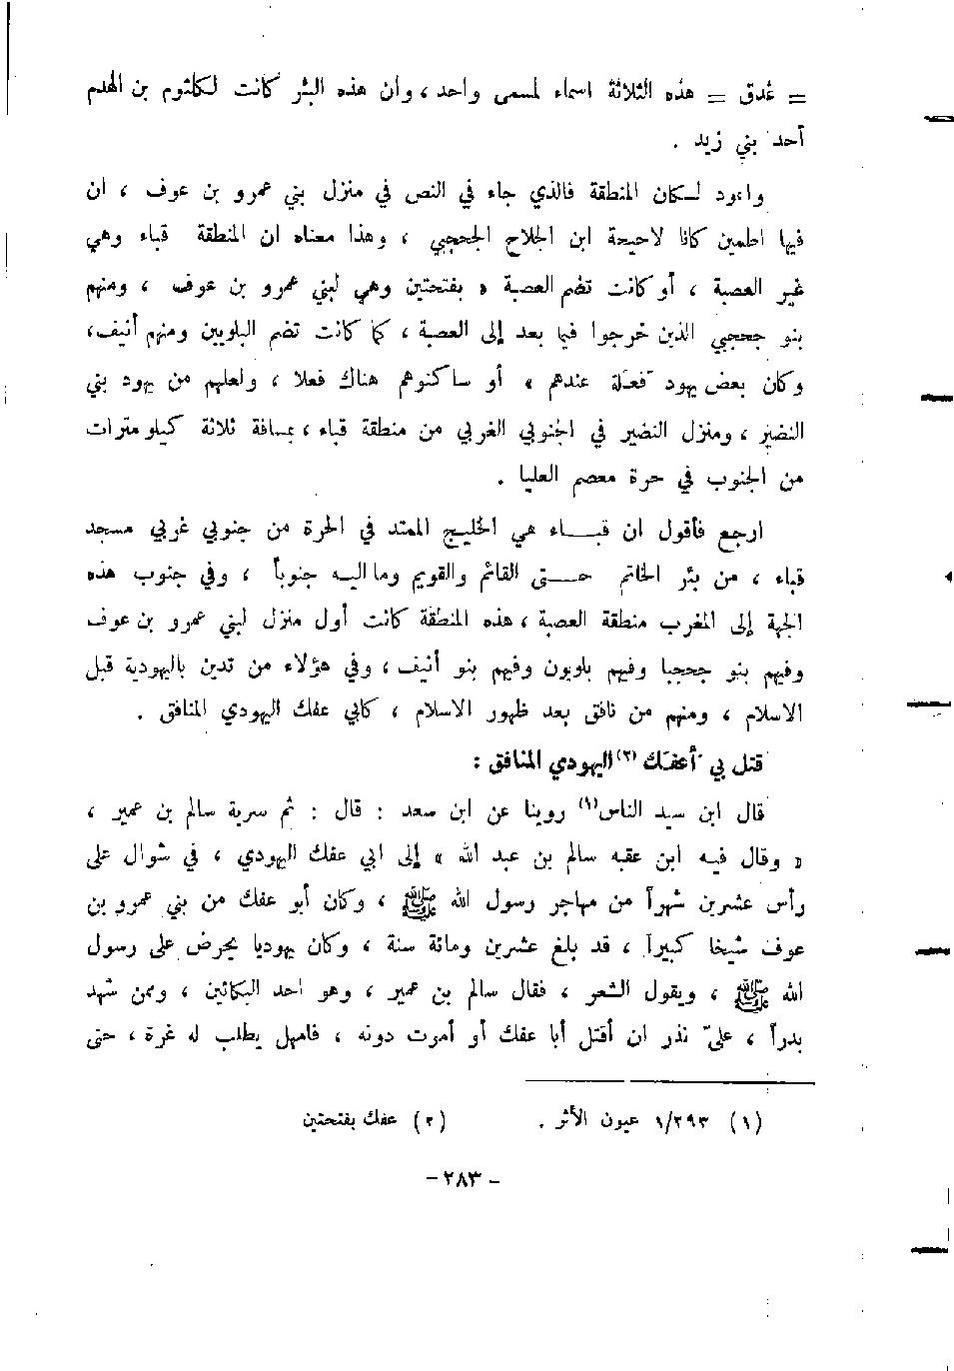 = غدق = هذه الثلاثة اسماء لمسمى واحد ، وان هذه البئر كانت لكلثوم بن الهدم
أحد بني زيد .
واعود لسكان المنطقة فالذي جاء في النص في منزل بني عمرو بن عوف ، ان
فيها اطمين كانا لاحيحة ابن الجلاح الجحجبي ، وهذا معناه ان المنطقة قباء وهي
غير العصبة ، أو كانت تضم العصبة « بفتحتين وهي لبني عمرو بن عوف ، ومنهم
بنو جحجبي الذين خرجوا فيما بعد إلى العصبة ، كما كانت تضم البلويين ومنهم أنيف ،
وكان بعض يهود فعلة عندهم » أو ساكنوهم هناك فعلا ، ولعلهم من يهود بني
النضير ، ومنزل النضير في الجنوبي الغربي من منطقة قباء ، بمسافة ثلاثة كيلو مترات
من الجنوب في حرة معصم العليا .
ارجع فأقول ان قبــاء هي الخليج الممتد في الحرة من جنوبي غربي مسجد
قباء ، من بئر الخاتم حــتى القائم والقويم وما اليه جنوباً ، وفي جنوب هذه
الجهة إلى المغرب منطقة العصبة ، هذه المنطقة كانت أول منزل لبني عمرو بن عوف
وفيهم بنو جحجبا وفيهم بلويون وفيهم بنو أنيف ، وفي هؤلاء من تدين باليهودية قبل
الاسلام ، ومنهم من نافق بعد ظهور الاسلام ، كابي عفك اليهودي المنافق .
قتل بي أعفك (٢) اليهودي المنافق :
قال ابن سيد الناس (١) روينا عن ابن سعد : قال : ثم سرية سالم بن عمير ،
« وقال فيه ابن عقبه سالم بن عبد الله » إلى ابي عفك اليهودي ، في شوال على
رأس عشرين شهراً من مهاجر رسول الله ﷺ ، وكان أبو عفك من بني عمرو بن
عوف شيخا كبيراً ، قد بلغ عشرين ومائة سنة ، وكان يهوديا يحرض على رسول
الله ﷺ ، ويقول الشعر ، فقال سالم بن عمير ، وهو احد البكائين ، وممن شهد
بدراً ، عليّ نذر ان أقتل أبا عفك أو أموت دونه ، فامهل يطلب له غرة ، حتى
(١) ١/٢٩٣ عيون الأثر . (٢) عفك بفتحتين
- ٢٨٣ -